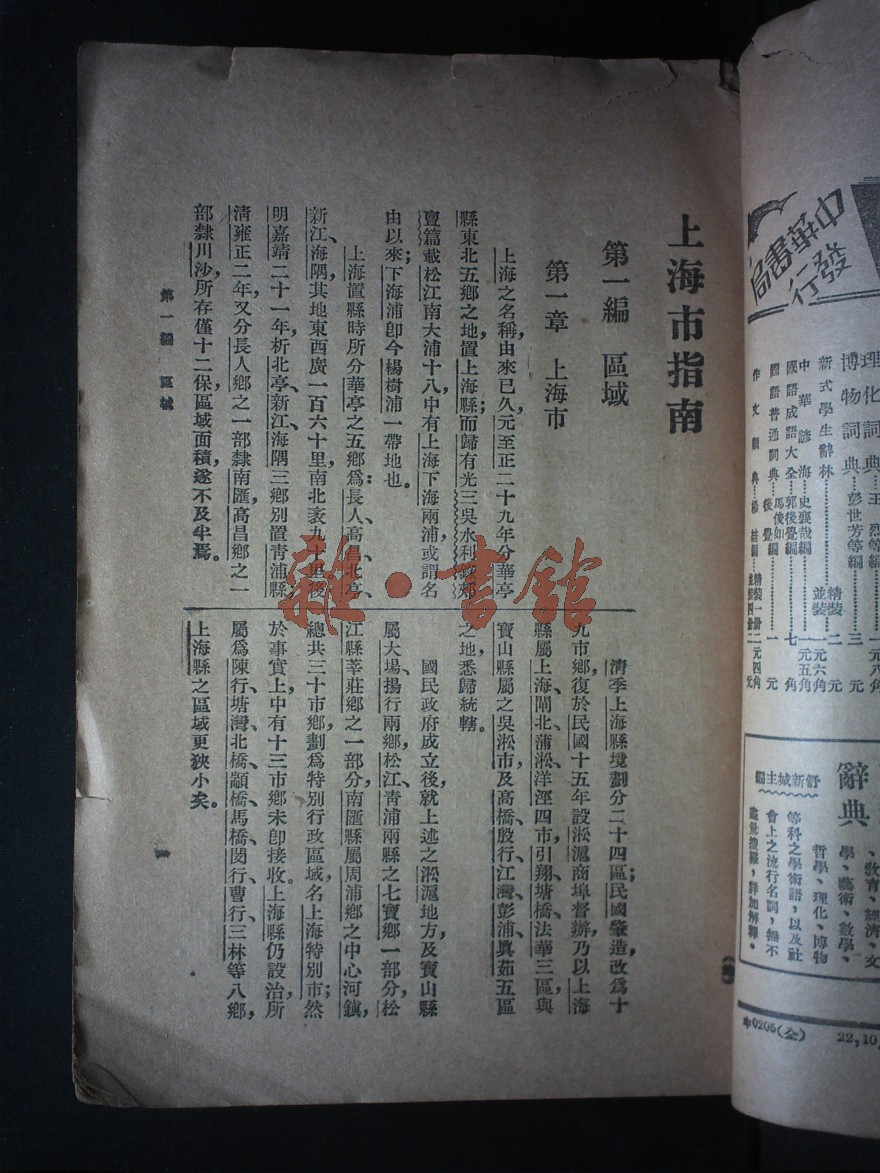 上海市指南
第一編 區域
第一章 上海市
上海之名稱，由來已久，元至正二十九年分華亭
縣東北五鄉之地，置上海縣；而歸有光三吳水利錄郟
亶篇載松江南大浦十八，中有上海下海兩浦，或謂名
由以來；下海浦卽今楊樹浦一帶地也。
上海置縣時，所分華亭之五鄉爲：長人、高昌、北亭、
新江、海隅，其地東西廣一百六十里，南北袤九十里。後
明嘉靖二十一年，析北亭、新江、海隅三鄉別置青浦縣；
清雍正二年，又分長人鄉之一部隸南匯，高昌鄉之一
部隸川沙，所存僅十二保，區域面積，遂不及半焉。
清季上海縣境劃分二十四區；民國肇造，改爲十
九市鄉，復於民國十五年設淞滬商埠督辦，乃以上海
縣屬上海、閘北、蒲淞、洋涇四市，引翔、塘橋、法華三區，與
寶山縣屬之吳淞市，及高橋、殷行、江灣、彭浦、眞茹五區
之地，悉歸統轄。
國民政府成立後，就上述之淞滬地方，及寶山縣
屬大場、揚行兩鄉，松江、青浦兩縣之七寶鄉一部分，松
江縣莘莊鄉之一部分，南匯縣屬周浦鄉之中心河鎭，
總共三十市鄉，劃爲特別行政區域，名上海特別市；然
於事實上，中有十三市鄉未卽接收。上海縣仍設治所
屬爲陳行、塘灣、北橋、顓橋、馬橋、閔行、曹行、三林等八鄉，
上海縣之區域更狹小矣。
第一編 區域
一
雜·書館
中華書局
發行
理化詞典……王 烈等編 一元八角
博物詞典……彭世芳等編 三元
新式學生辭林 精裝 二元
並裝 一元六角
中華諺海……史襄哉編 一元五角
國語成語大全……郭後覺編 七角
國語普通詞典……馬俊如 後覺編 一元
作文類典 精裝一册 二元四角
並裝四册 二元
舒新城主編
辭典
、敎育、經濟、文
學、藝術、數學、
哲學、理化、博物
等科之學術語，以及社
會上之流行名詞，無不
儘量搜羅，詳加解釋。
中0205(全) 22,10,